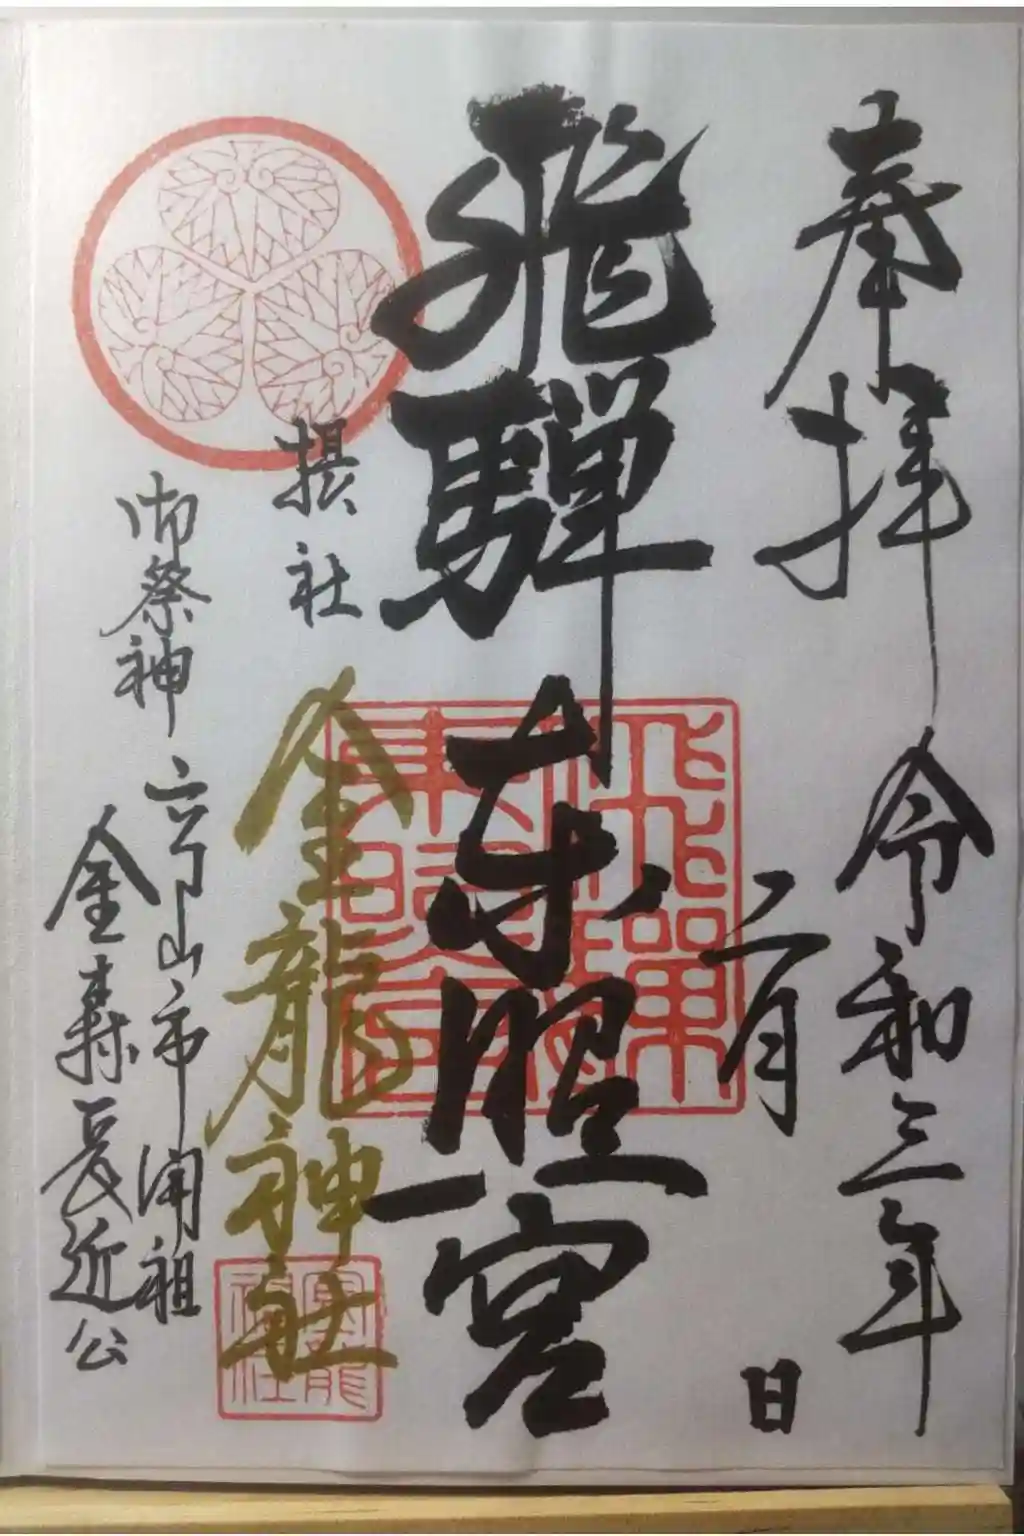 奉拝
令和三年
二月
日
飛騨東照宮
摂社
金龍神社
御祭神
高山市開祖
金森長近公
飛騨
東照宮
金龍
神社